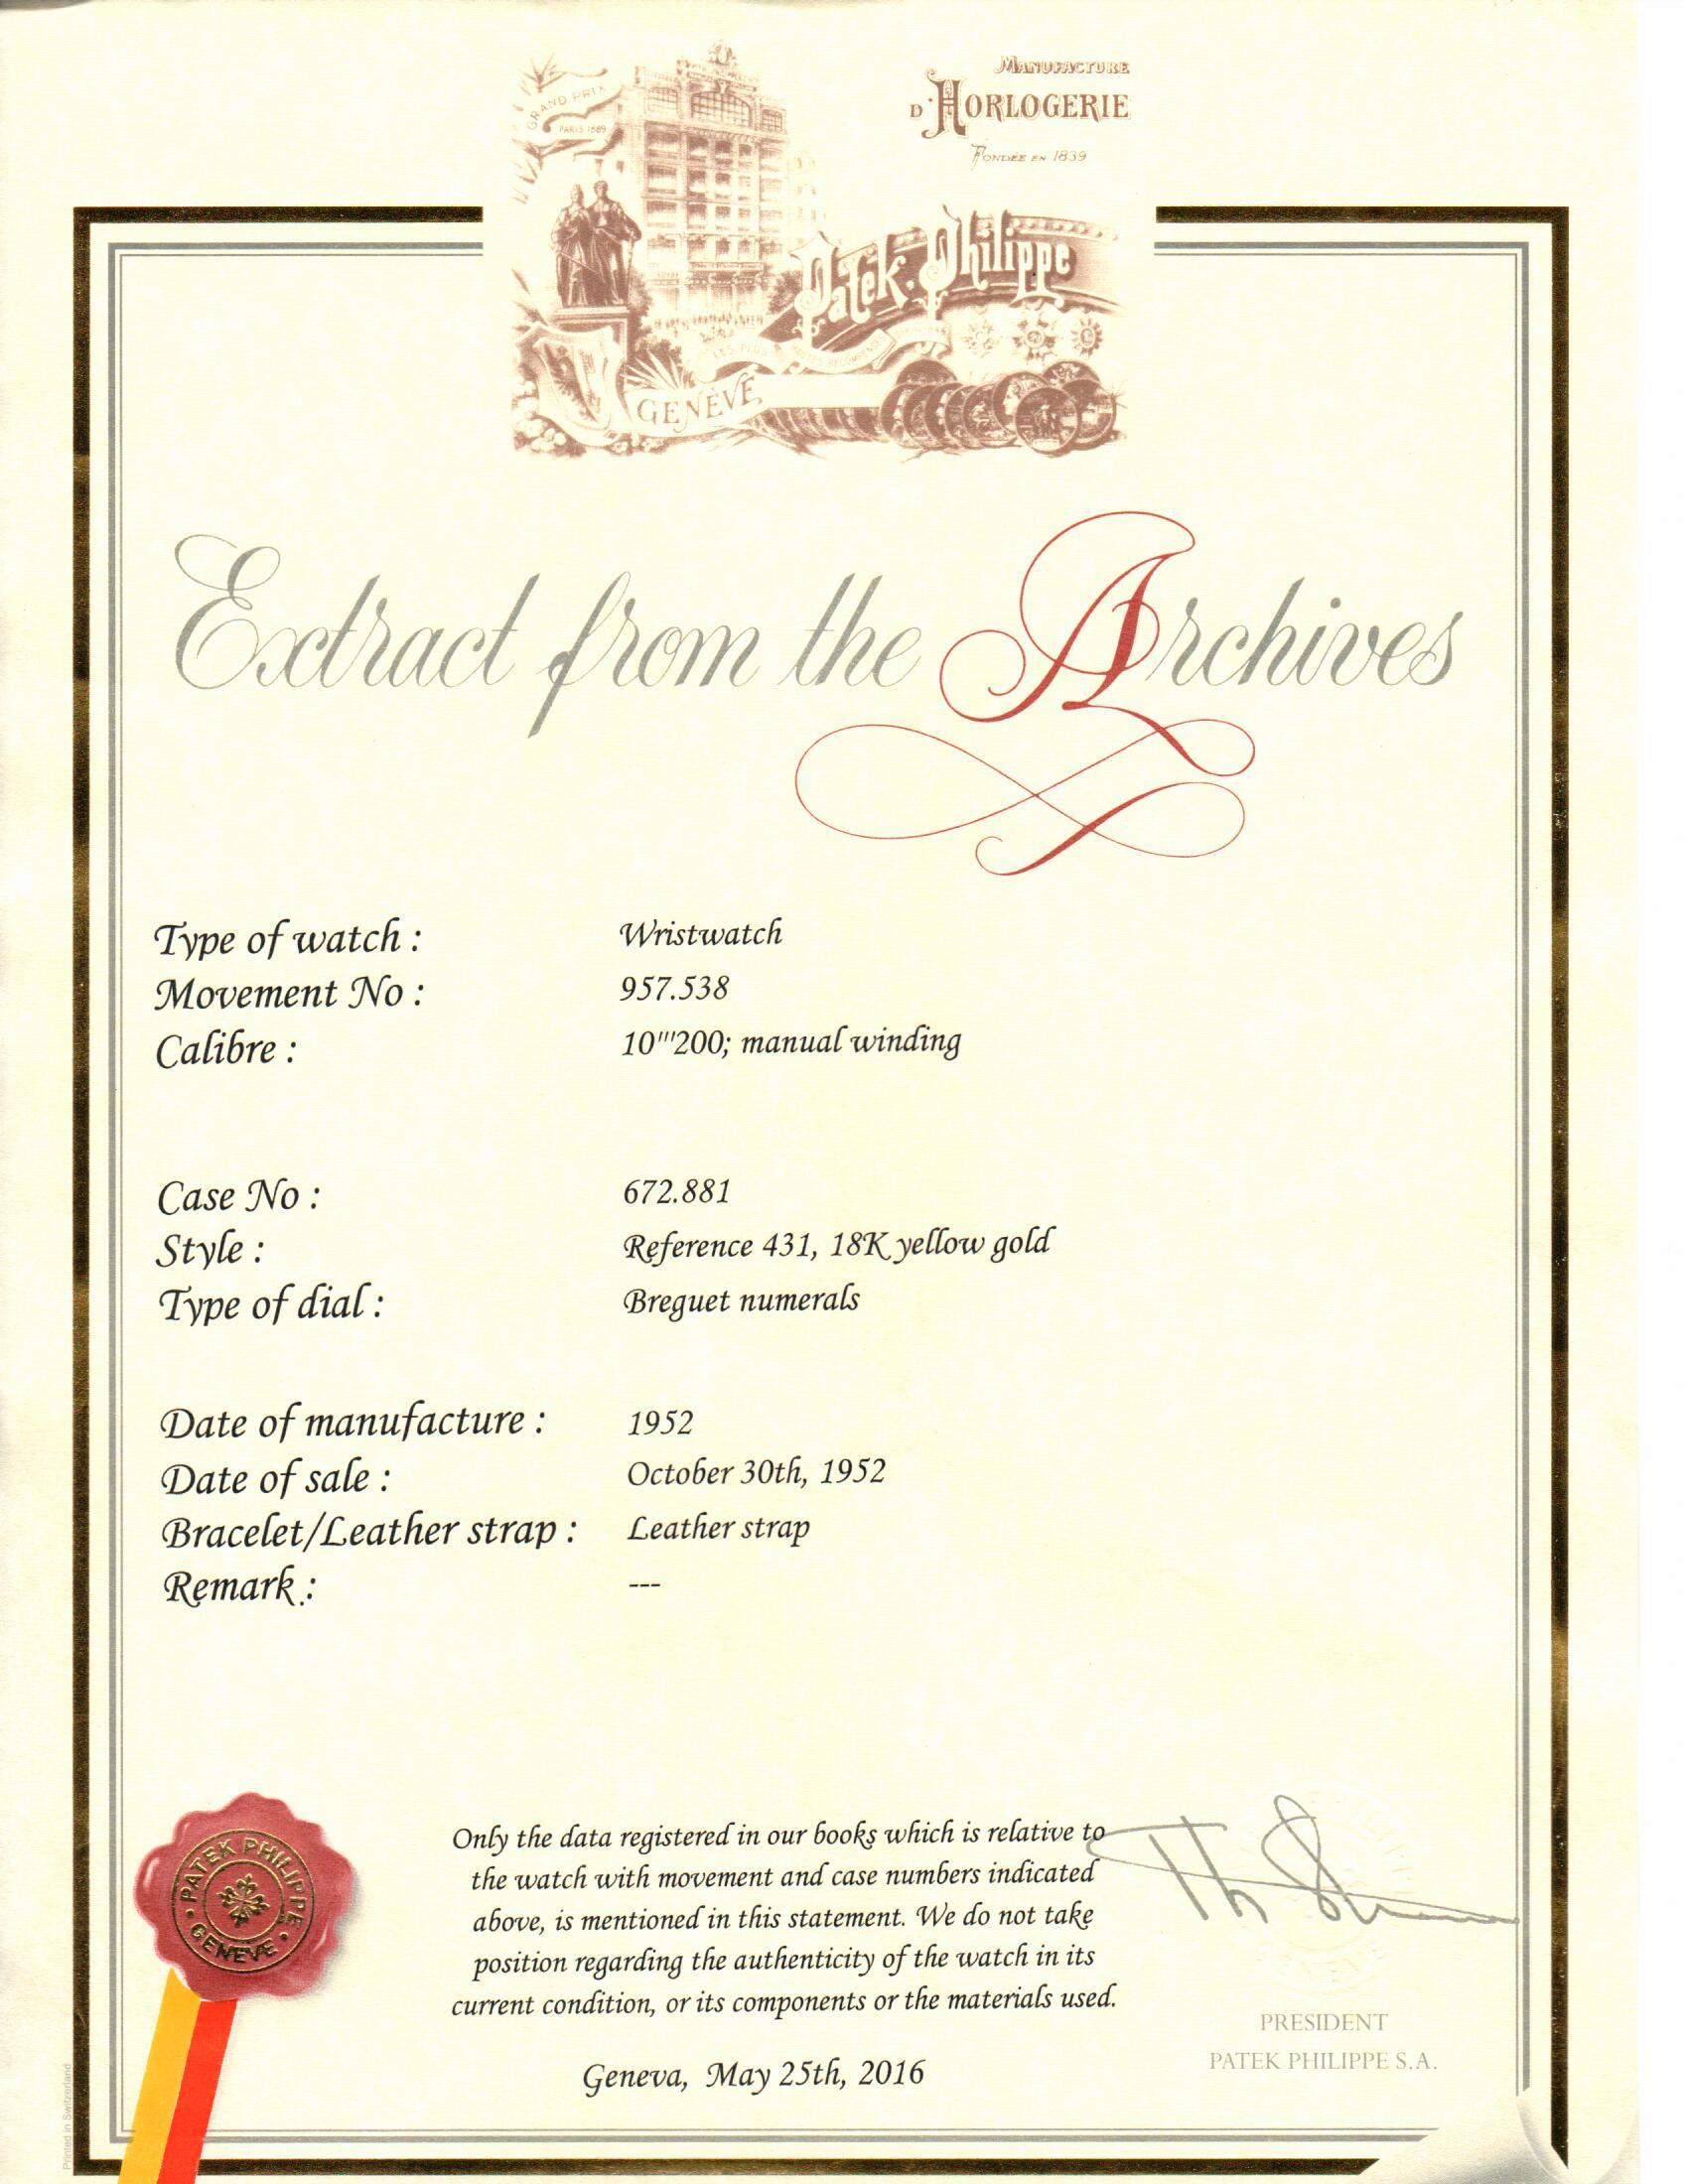 GRAND PRIX
PARIS 1889
MANUFACTURE
D'HORLOGERIE
FONDÉE EN 1839
Patek. Philippe
LES PLUS HAUTES RECOMPENSES
GENÈVE
Extract from the Archives
Type of watch : Wristwatch
Movement No : 957.538
Calibre : 10'''200; manual winding
Case No : 672.881
Style : Reference 431, 18K yellow gold
Type of dial : Breguet numerals
Date of manufacture : 1952
Date of sale : October 30th, 1952
Bracelet/Leather strap : Leather strap
Remark : ---
PATEK PHILIPPE
GENEVE
Only the data registered in our books which is relative to
the watch with movement and case numbers indicated
above, is mentioned in this statement. We do not take
position regarding the authenticity of the watch in its
current condition, or its components or the materials used.
PRESIDENT
PATEK PHILIPPE S.A.
Geneva, May 25th, 2016
Printed in Switzerland